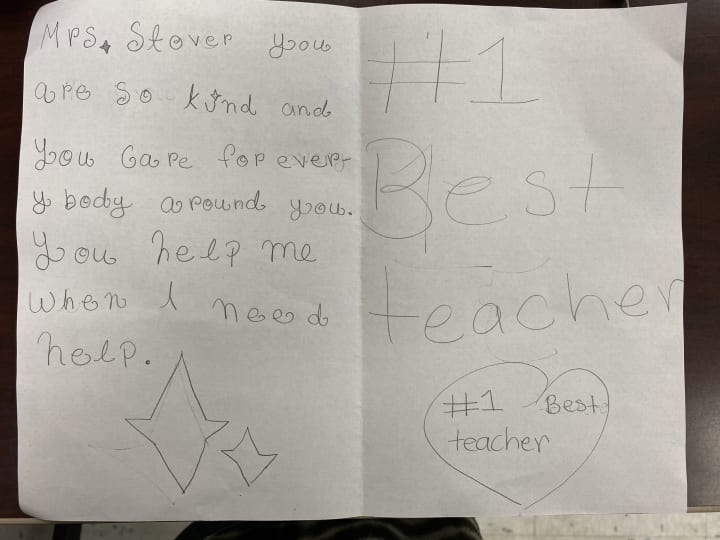 Mrs. Stover you
are so kind and
you Care for ever-
y body around you.
You help me
when I need
help.
#1
Best
teacher
#1 Best
teacher